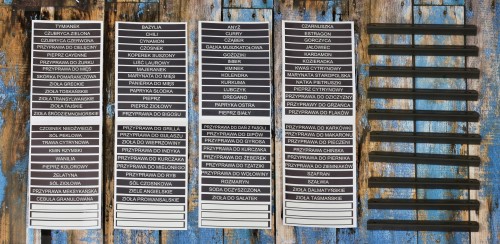 TYMIANEK
CZUBRYCA ZIELONA
CZUBRYCA CZERWONA
PRZYPRAWA DO CIELĘCINY
PIEPRZ CAYENNE
PRZYPRAWA DO ŻURKU
PRZYPRAWA DO RYB
SKÓRKA POMARAŃCZOWA
ZIOŁA GRECKIE
ZIOŁA TOSKAŃSKIE
ZIOŁA TRANSYLWAŃSKIE
ZIOŁA TAJSKIE
ZIOŁA ŚRÓDZIEMNOMORSKIE
CZOSNEK NIEDŹWIEDZI
SÓL PEKLOWA
TRAWA CYTRYNOWA
KMIN RZYMSKI
WANILIA
PIEPRZ KOLOROWY
ŻELATYNA
SÓL ZIOŁOWA
PRZYPRAWA MEKSYKAŃSKA
CEBULA GRANULOWANA
BAZYLIA
CHILI
CYNAMON
CZOSNEK
KOPEREK SUSZONY
LIŚĆ LAUROWY
MAJERANEK
MARYNATA DO MIĘS
PANIERKA DO MIĘS
PAPRYKA SŁODKA
PIEPRZ
PIEPRZ ZIOŁOWY
PRZYPRAWA DO BIGOSU
PRZYPRAWA DO GRILLA
PRZYPRAWA DO GULASZU
ZIOŁA DO WIEPRZOWINY
PRZYPRAWA DO INDYKA
PRZYPRAWA DO KURCZAKA
PRZYPRAWA DO MIELONEGO
PRZYPRAWA DO RYB
SÓL CZOSNKOWA
ZIELE ANGIELSKIE
ZIOŁA PROWANSALSKIE
ANYŻ
CURRY
CZĄBER
GAŁKA MUSZKATOŁOWA
GOŹDZIKI
IMBIR
KMINEK
KOLENDRA
KURKUMA
LUBCZYK
OREGANO
PAPRYKA OSTRA
PIEPRZ BIAŁY
PRZYPRAWA DO DAŃ Z FASOLI
PRZYPRAWA DO DIPÓW
PRZYPRAWA DO GYROSA
PRZYPRAWA DO KURCZAKA
PRZYPRAWA DO ŻEBEREK
PRZYPRAWA DO TZATZIKI
PRZYPRAWA DO WOŁOWINY
ROZMARYN
SODA OCZYSZCZONA
ZIOŁA DO SAŁATEK
CZARNUSZKA
ESTRAGON
GORCZYCA
JAŁOWIEC
KARDAMON
KOZIERADKA
KWAS CYTRYNOWY
MARYNATA STAROPOLSKA
NATKA PIETRUSZKI
PIEPRZ CYTRYNOWY
PRZYPRAWA DO DZICZYZNY
PRZYPRAWA DO GRZAŃCA
PRZYPRAWA DO FLAKÓW
PRZYPRAWA DO KARKÓWKI
PRZYPRAWA DO MAKARONU
PRZYPRAWA DO PIECZENI
PRZYPRAWA CHIŃSKA
PRZYPRAWA DO PIERNIKA
PRZYPRAWA DO ZIEMNIAKÓW
SZAFRAN
SZAŁWIA
ZIOŁA DALMATYŃSKIE
ZIOŁA TASMAŃSKIE